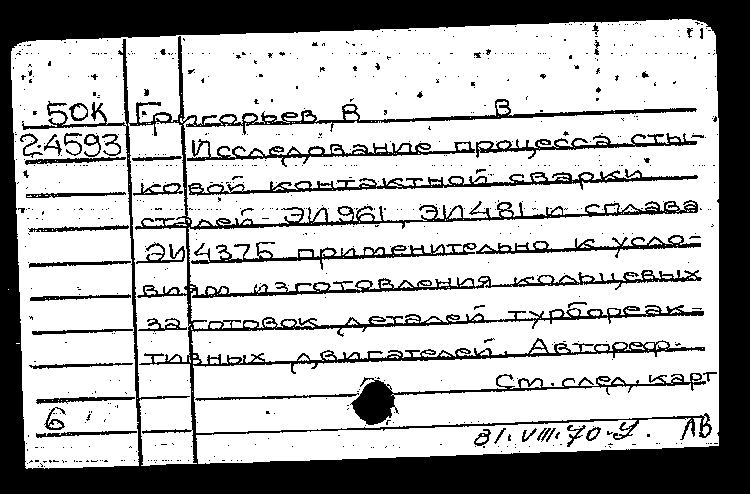 50К Григорьев, В В.
2-4593 Исследование процесса сты-
ковой контактной сварки
сталей ЭИ961, ЭИ481 и сплава
ЭИ437Б применительно к усло-
виям изготовления кольцевых
заготовок деталей турбореак-
тивных двигателей. Автореф.
См. след. карт
6
31.VIII.70 г. ЛВ